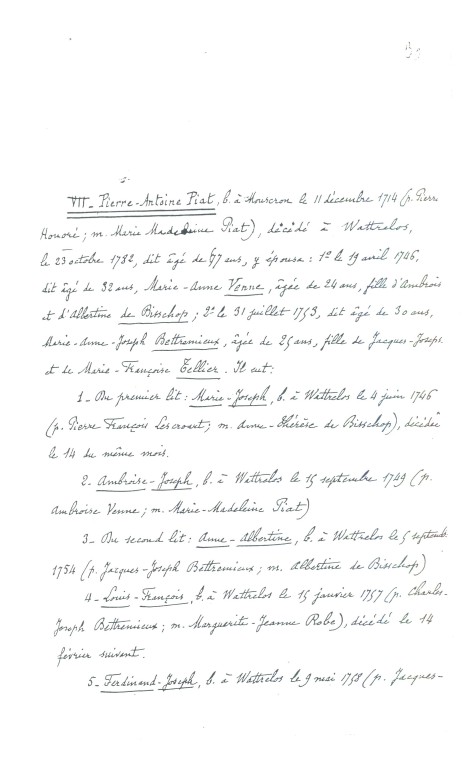 VII - Pierre-Antoine Piat, b. à Mouscron le 11 décembre 1714 (p. Pierre
Honoré ; m. Marie Madeleine Piat), décédé à Wattrelos,
le 23 octobre 1782, dit âgé de 77 ans, y épousa : 1° le 19 avril 1746,
dit âgé de 32 ans, Marie-Anne Venne, âgée de 24 ans, fille d'Ambrois
et d'Albertine de Bisschop ; 2° le 31 juillet 1753, dit âgé de 30 ans,
Marie-Anne-Joseph Bettremieux, âgée de 25 ans, fille de Jacques-Joseph
et de Marie-Françoise Tellier. Il eut :
1 - Du premier lit : Marie-Joseph, b. à Wattrelos le 4 juin 1746
(p. Pierre François Lescroart ; m. Anne-Thérèse de Bisschop), décédée
le 14 du même mois.
2 - Ambroise-Joseph, b. à Wattrelos le 15 septembre 1749 (p.
Ambroise Venne ; m. Marie-Madeleine Piat)
3 - Du second lit : Anne-Albertine, b. à Wattrelos le 5 septembre
1754 (p. Jacques-Joseph Bettremieux ; m. Albertine de Bisschop)
4 - Louis-François, b. à Wattrelos le 15 janvier 1757 (p. Charles-
Joseph Bettremieux ; m. Marguerite-Jeanne Robe), décédé le 14
février suivant.
5 - Ferdinand-Joseph, b. à Wattrelos le 9 mai 1758 (p. Jacques-